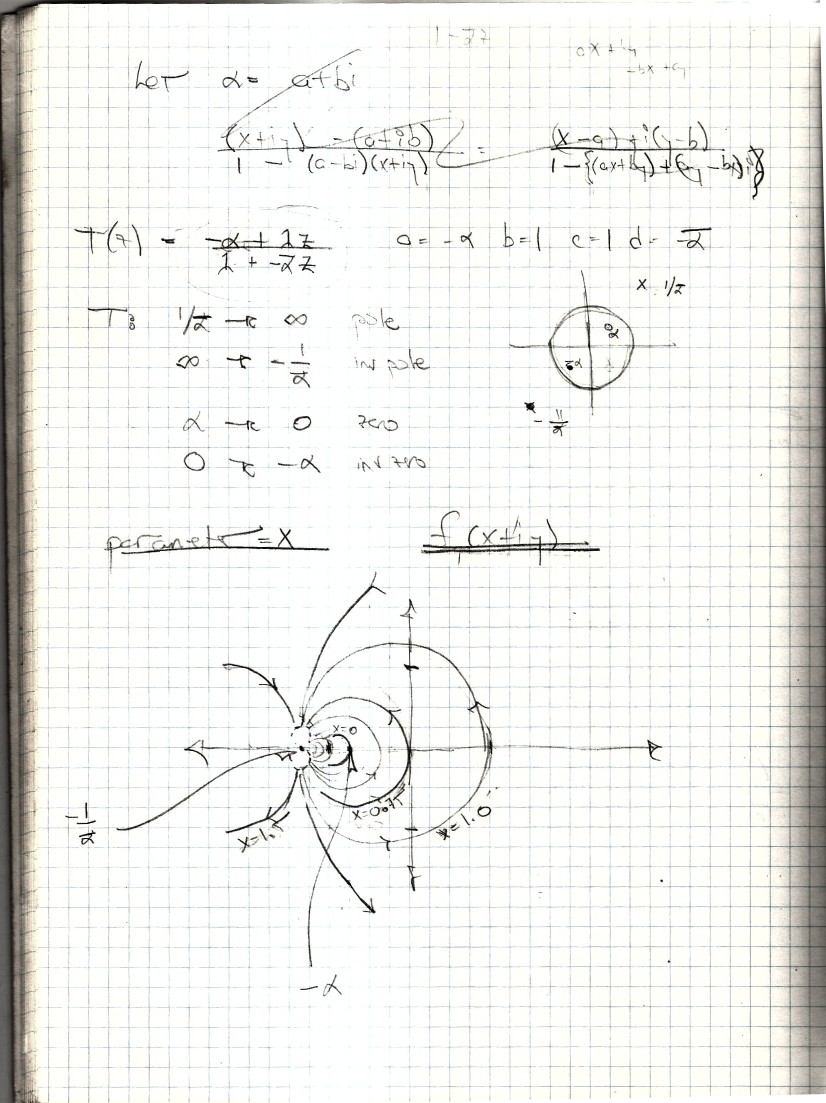 Let α = a+bi
(x+iy) - (a+ib) / 1 - (a-bi)(x+iy) = (x-a)+i(y-b) / 1-{(ax+by)+(ay-bx)i}
T(z) = -α + 1z / 1 + -ᾱz a = -α b=1 c=1 d = -ᾱ
x 1/ᾱ
T: 1/ᾱ → ∞ pole
∞ → -1/ᾱ inv pole
α → 0 zero
0 → -α inv zero
parameter = x f(x+iy)
x=0
x=0.75
x=1.0
x=1.5
-1/ᾱ
-α